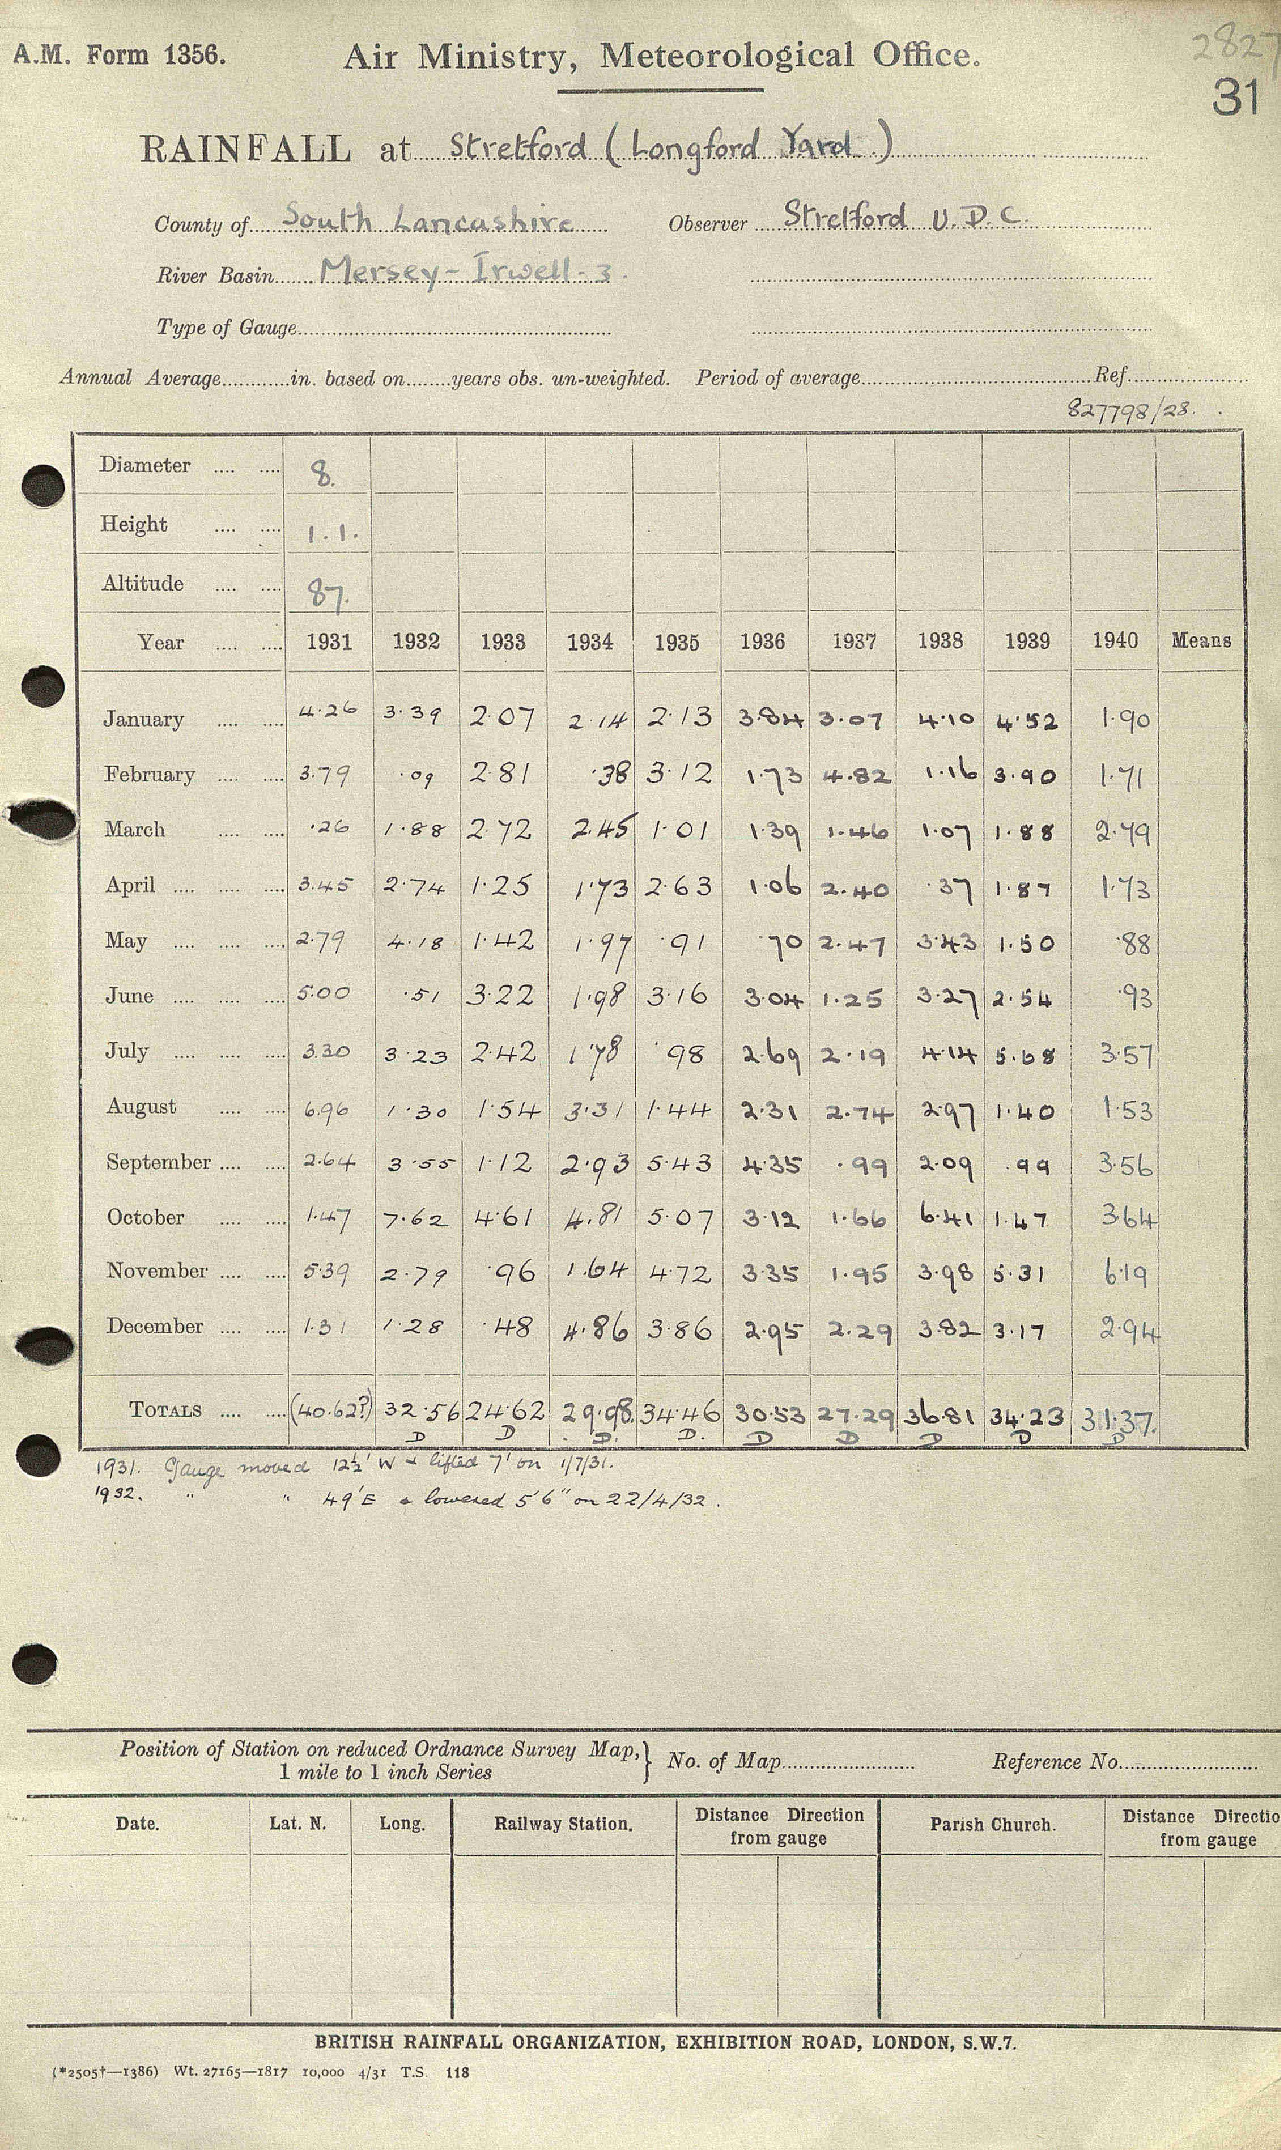 2827
31
A.M. Form 1356. Air Ministry, Meteorological Office.
RAINFALL at Stretford (Longford Yard)
County of South Lancashire Observer Stretford U.D.C.
River Basin Mersey-Irwell-3.
Type of Gauge
Annual Average in. based on years obs. un-weighted. Period of average Ref.
827798/28.
Diameter 8.
Height 1.1.
Altitude 87.
Year 1931 1932 1933 1934 1935 1936 1937 1938 1939 1940 Means
January 4.26 3.39 2.07 2.14 2.13 3.84 3.07 4.10 4.52 1.90
February 3.79 .09 2.81 .38 3.12 1.73 4.82 1.16 3.90 1.71
March .26 1.88 2.72 2.45 1.01 1.39 1.46 1.07 1.88 2.79
April 3.45 2.74 1.25 1.73 2.63 1.06 2.40 .37 1.87 1.73
May 2.79 4.18 1.42 1.97 .91 .70 2.47 3.43 1.50 .88
June 5.00 .51 3.22 1.98 3.16 3.04 1.25 3.27 2.54 .93
July 3.30 3.23 2.42 1.78 .98 2.69 2.19 4.14 5.68 3.57
August 6.96 1.30 1.54 3.31 1.44 2.31 2.74 2.97 1.40 1.53
September 2.64 3.55 1.12 2.93 5.43 4.35 .99 2.09 .99 3.56
October 1.47 7.62 4.61 4.81 5.07 3.12 1.66 6.41 1.47 3.64
November 5.39 2.79 .96 1.64 4.72 3.35 1.95 3.98 5.31 6.19
December 1.31 1.28 .48 4.86 3.86 2.95 2.29 3.82 3.17 2.94
TOTALS (40.62?) 32.56 24.62 29.98. 34.46 30.53 27.29 36.81 34.23 31.37.
D D D. D. D D D D D
1931. Gauge moved 12½' W & lifted 7' on 1/7/31.
1932. " " 49'E & lowered 5'6" on 22/4/32.
Position of Station on reduced Ordnance Survey Map, } No. of Map Reference No.
1 mile to 1 inch Series
Date. Lat. N. Long. Railway Station. Distance Direction from gauge Parish Church. Distance Directio from gauge
BRITISH RAINFALL ORGANIZATION, EXHIBITION ROAD, LONDON, S.W.7.
(*2505†—1386) Wt. 27165—1817 10,000 4/31 T.S. 118